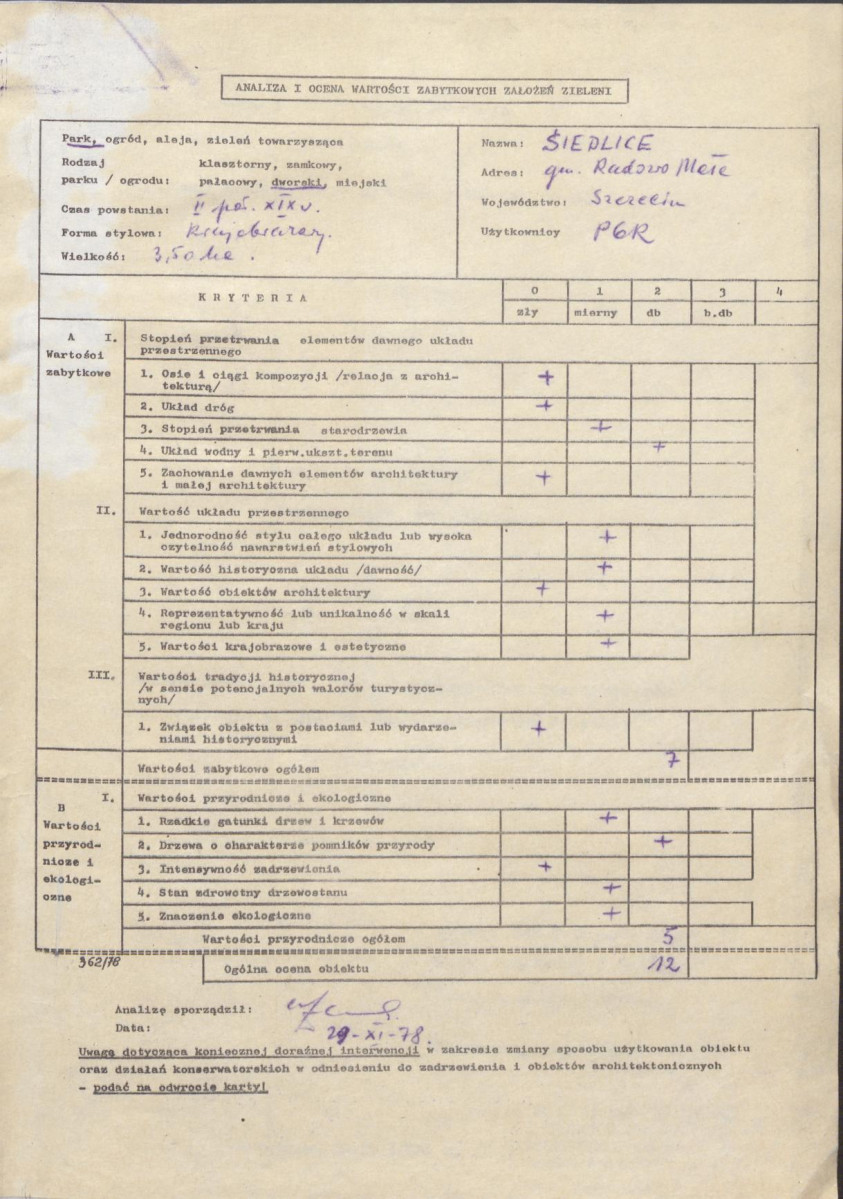 ANALIZA I OCENA WARTOŚCI ZABYTKOWYCH ZAŁOŻEŃ ZIELENI
Park, ogród, aleja, zieleń towarzysząca
Rodzaj klasztorny, zamkowy,
parku / ogrodu: pałacowy, dworski, miejski
Czas powstania: II poł. XIX w.
Forma stylowa: Krajobrazowy.
Wielkość: 3,50 ha.
Nazwa: SIEDLICE
Adres: gm. Radowo Małe
Województwo: Szczecin
Użytkownicy PGR
KRYTERIA 0 1 2 3 4
zły mierny db b.db
A I. Stopień przetrwania elementów dawnego układu
Wartości przestrzennego
zabytkowe
1. Osie i ciągi kompozycji /relacja z archi-
tekturą/ +
2. Układ dróg +
3. Stopień przetrwania starodrzewia +
4. Układ wodny i pierw.ukszt.terenu +
5. Zachowanie dawnych elementów architektury
i małej architektury +
II. Wartość układu przestrzennego
1. Jednorodność stylu całego układu lub wysoka
czytelność nawarstwień stylowych +
2. Wartość historyczna układu /dawność/ +
3. Wartość obiektów architektury +
4. Reprezentatywność lub unikalność w skali
regionu lub kraju +
5. Wartości krajobrazowe i estetyczne +
III. Wartości tradycji historycznej
/w sensie potencjalnych walorów turystycz-
nych/
1. Związek obiektu z postaciami lub wydarze-
niami historycznymi +
Wartości zabytkowe ogółem 7
B I. Wartości przyrodnicze i ekologiczne
Wartości
przyrod-
nicze i
ekologi-
czne
1. Rzadkie gatunki drzew i krzewów +
2. Drzewa o charakterze pomników przyrody +
3. Intensywność zadrzewienia +
4. Stan zdrowotny drzewostanu +
5. Znaczenie ekologiczne +
Wartości przyrodnicze ogółem 5
362/78
Ogólna ocena obiektu 12
Analizę sporządził:
Data: 29-XI-78.
Uwaga dotycząca koniecznej doraźnej interwencji w zakresie zmiany sposobu użytkowania obiektu
oraz działań konserwatorskich w odniesieniu do zadrzewienia i obiektów architektonicznych
- podać na odwrocie karty!